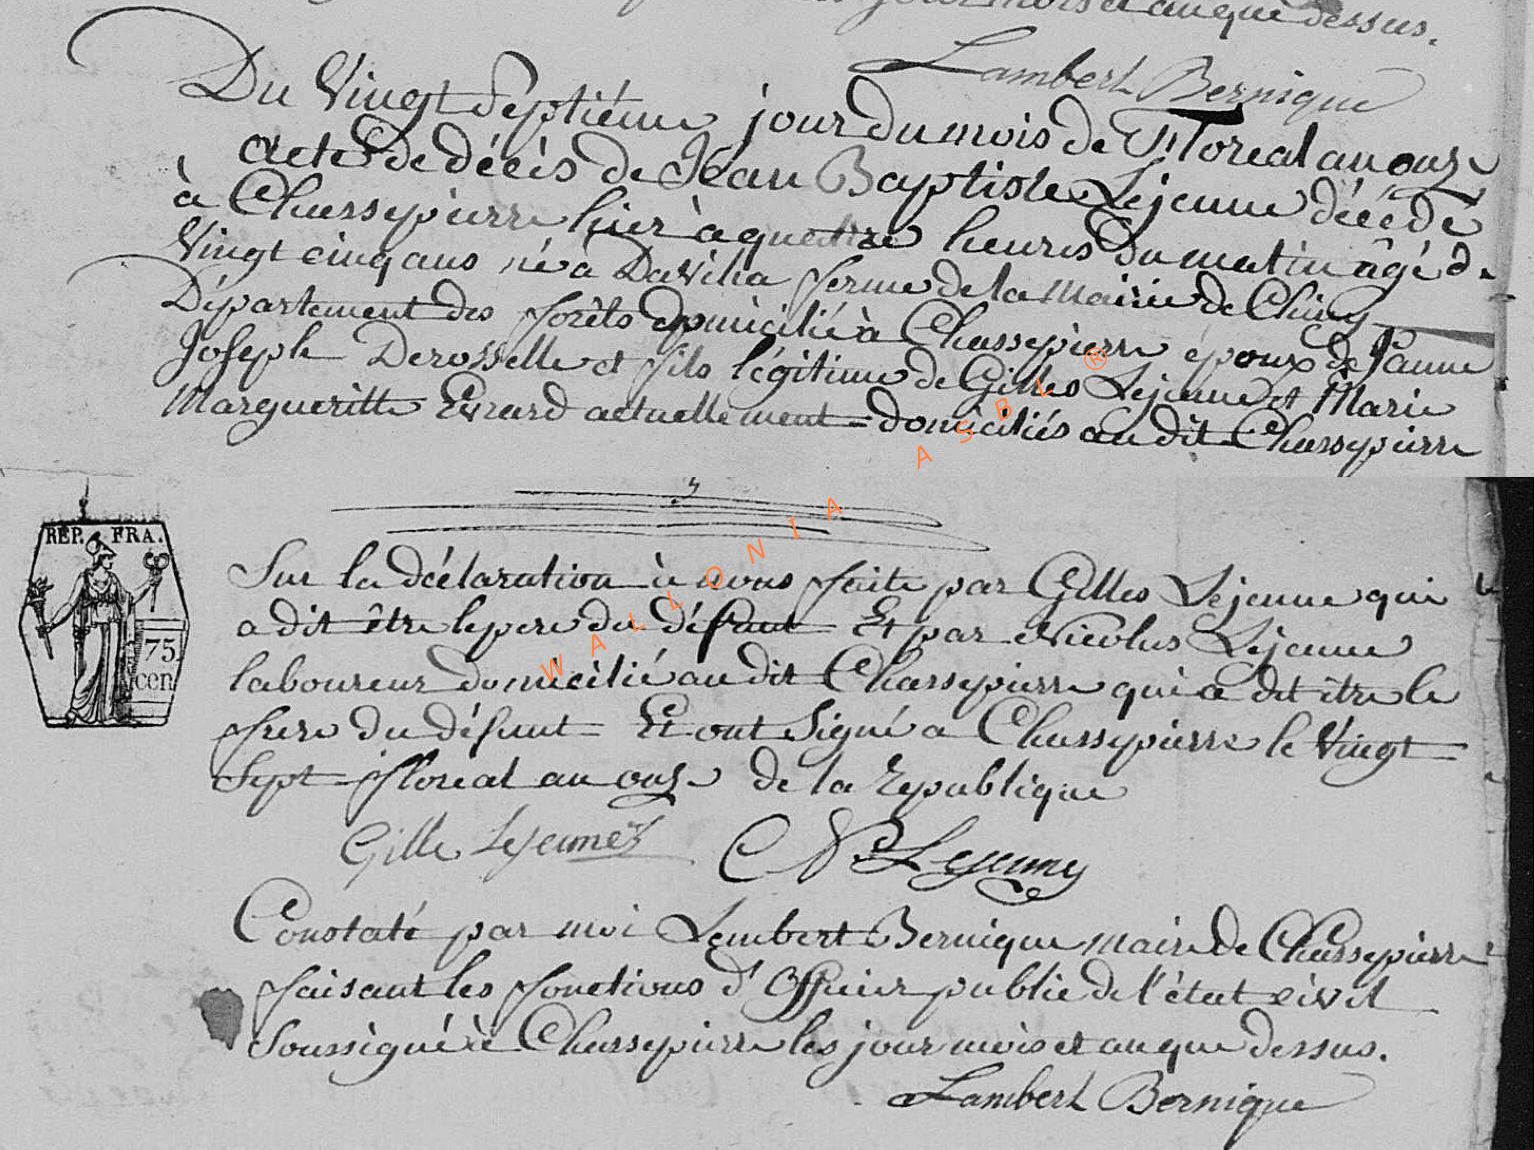 jour mois et an que dessus.
Lambert Bernique
Du Vingt Septième jour du mois de Floreal an onze
acte de décès de Jean Baptiste Lejeune décédé
à Chassepierre hier à quattre heures du matin âgé de
Vingt cinq ans né a DaWiha ferme de la Mairie de Chiny
Département des forêts domicilié à Chassepierre époux de Jeanne
Joseph Derosselle et fils légitime de Gilles Lejeune et Marie
Margueritte Evrard actuellement domiciliés au dit Chassepierre
REP. FRA.
75
cen
Sur la déclaration à nous faite par Gilles Lejeune qui
a dit être le pere du défunt Et par Nicolas Lejeune
laboureur domicilié au dit Chassepierre qui a dit être le
frere du défunt Et ont Signé a Chassepierre le Vingt
Sept floreal an onze de la republique
Gille Lejeune N Lejeune
Constaté par moi Lambert Bernique maire de Chassepierre
faisant les fonctions d'Officier public de l'état civil
Soussigné à Chassepierre les jour mois et an que dessus.
Lambert Bernique
WALLONIA ASBL ®